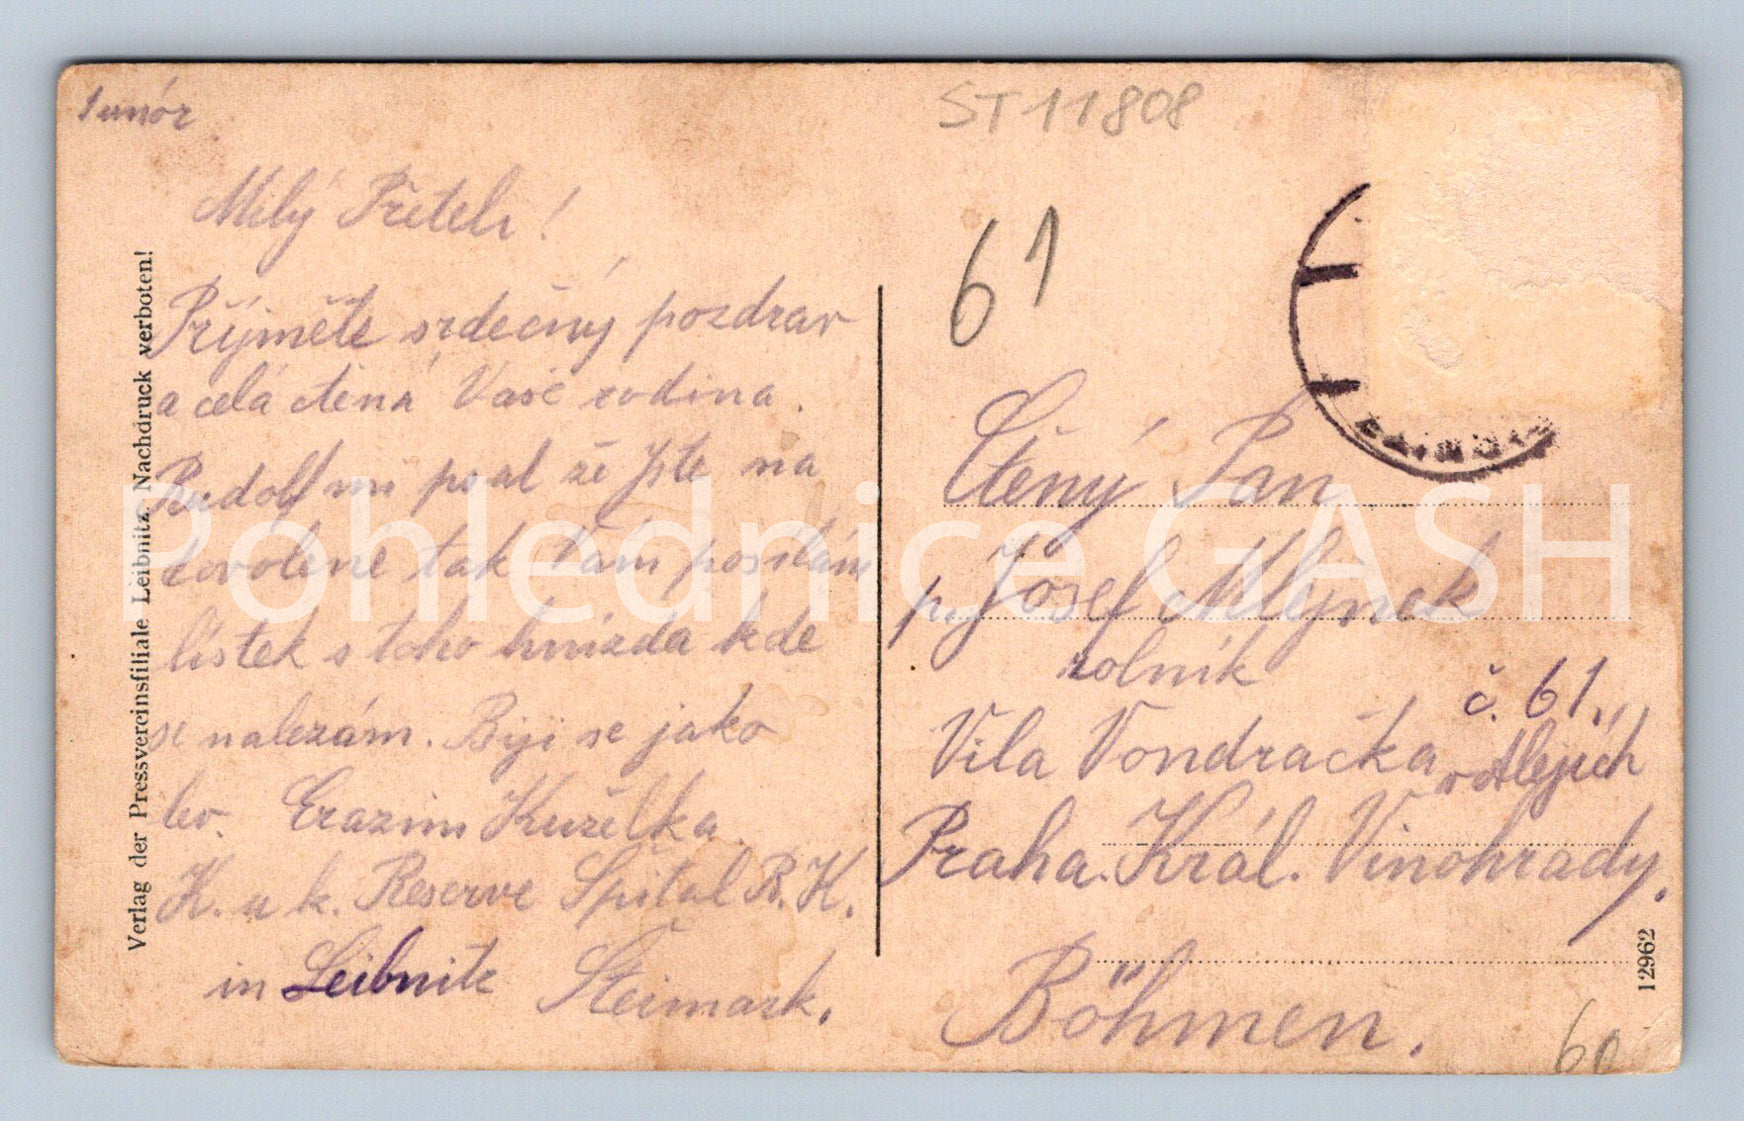 1 únór
Milý Příteli!
Přijměte srdečný pozdrav
a celá ctěná Vaše rodina.
Rudolf mi psal že Jste na
dovolené tak Vám posílám
lístek s toho hnízda kde
se nalezám. Biji se jako
lev. Erazim Kuželka
K. u k. Reserve Spital R. K.
in Leibnitz Steimark.
Verlag der Pressvereinsfiliale Leibnitz. Nachdruck verboten!
ST11808
61
Ctěný Pan
p. Josef Mlýnek
rolník
č. 61.
Vila Vondračka v Alejích
Praha. Král. Vinohrady.
Böhmen.
12962
60
Pohlednice GASH